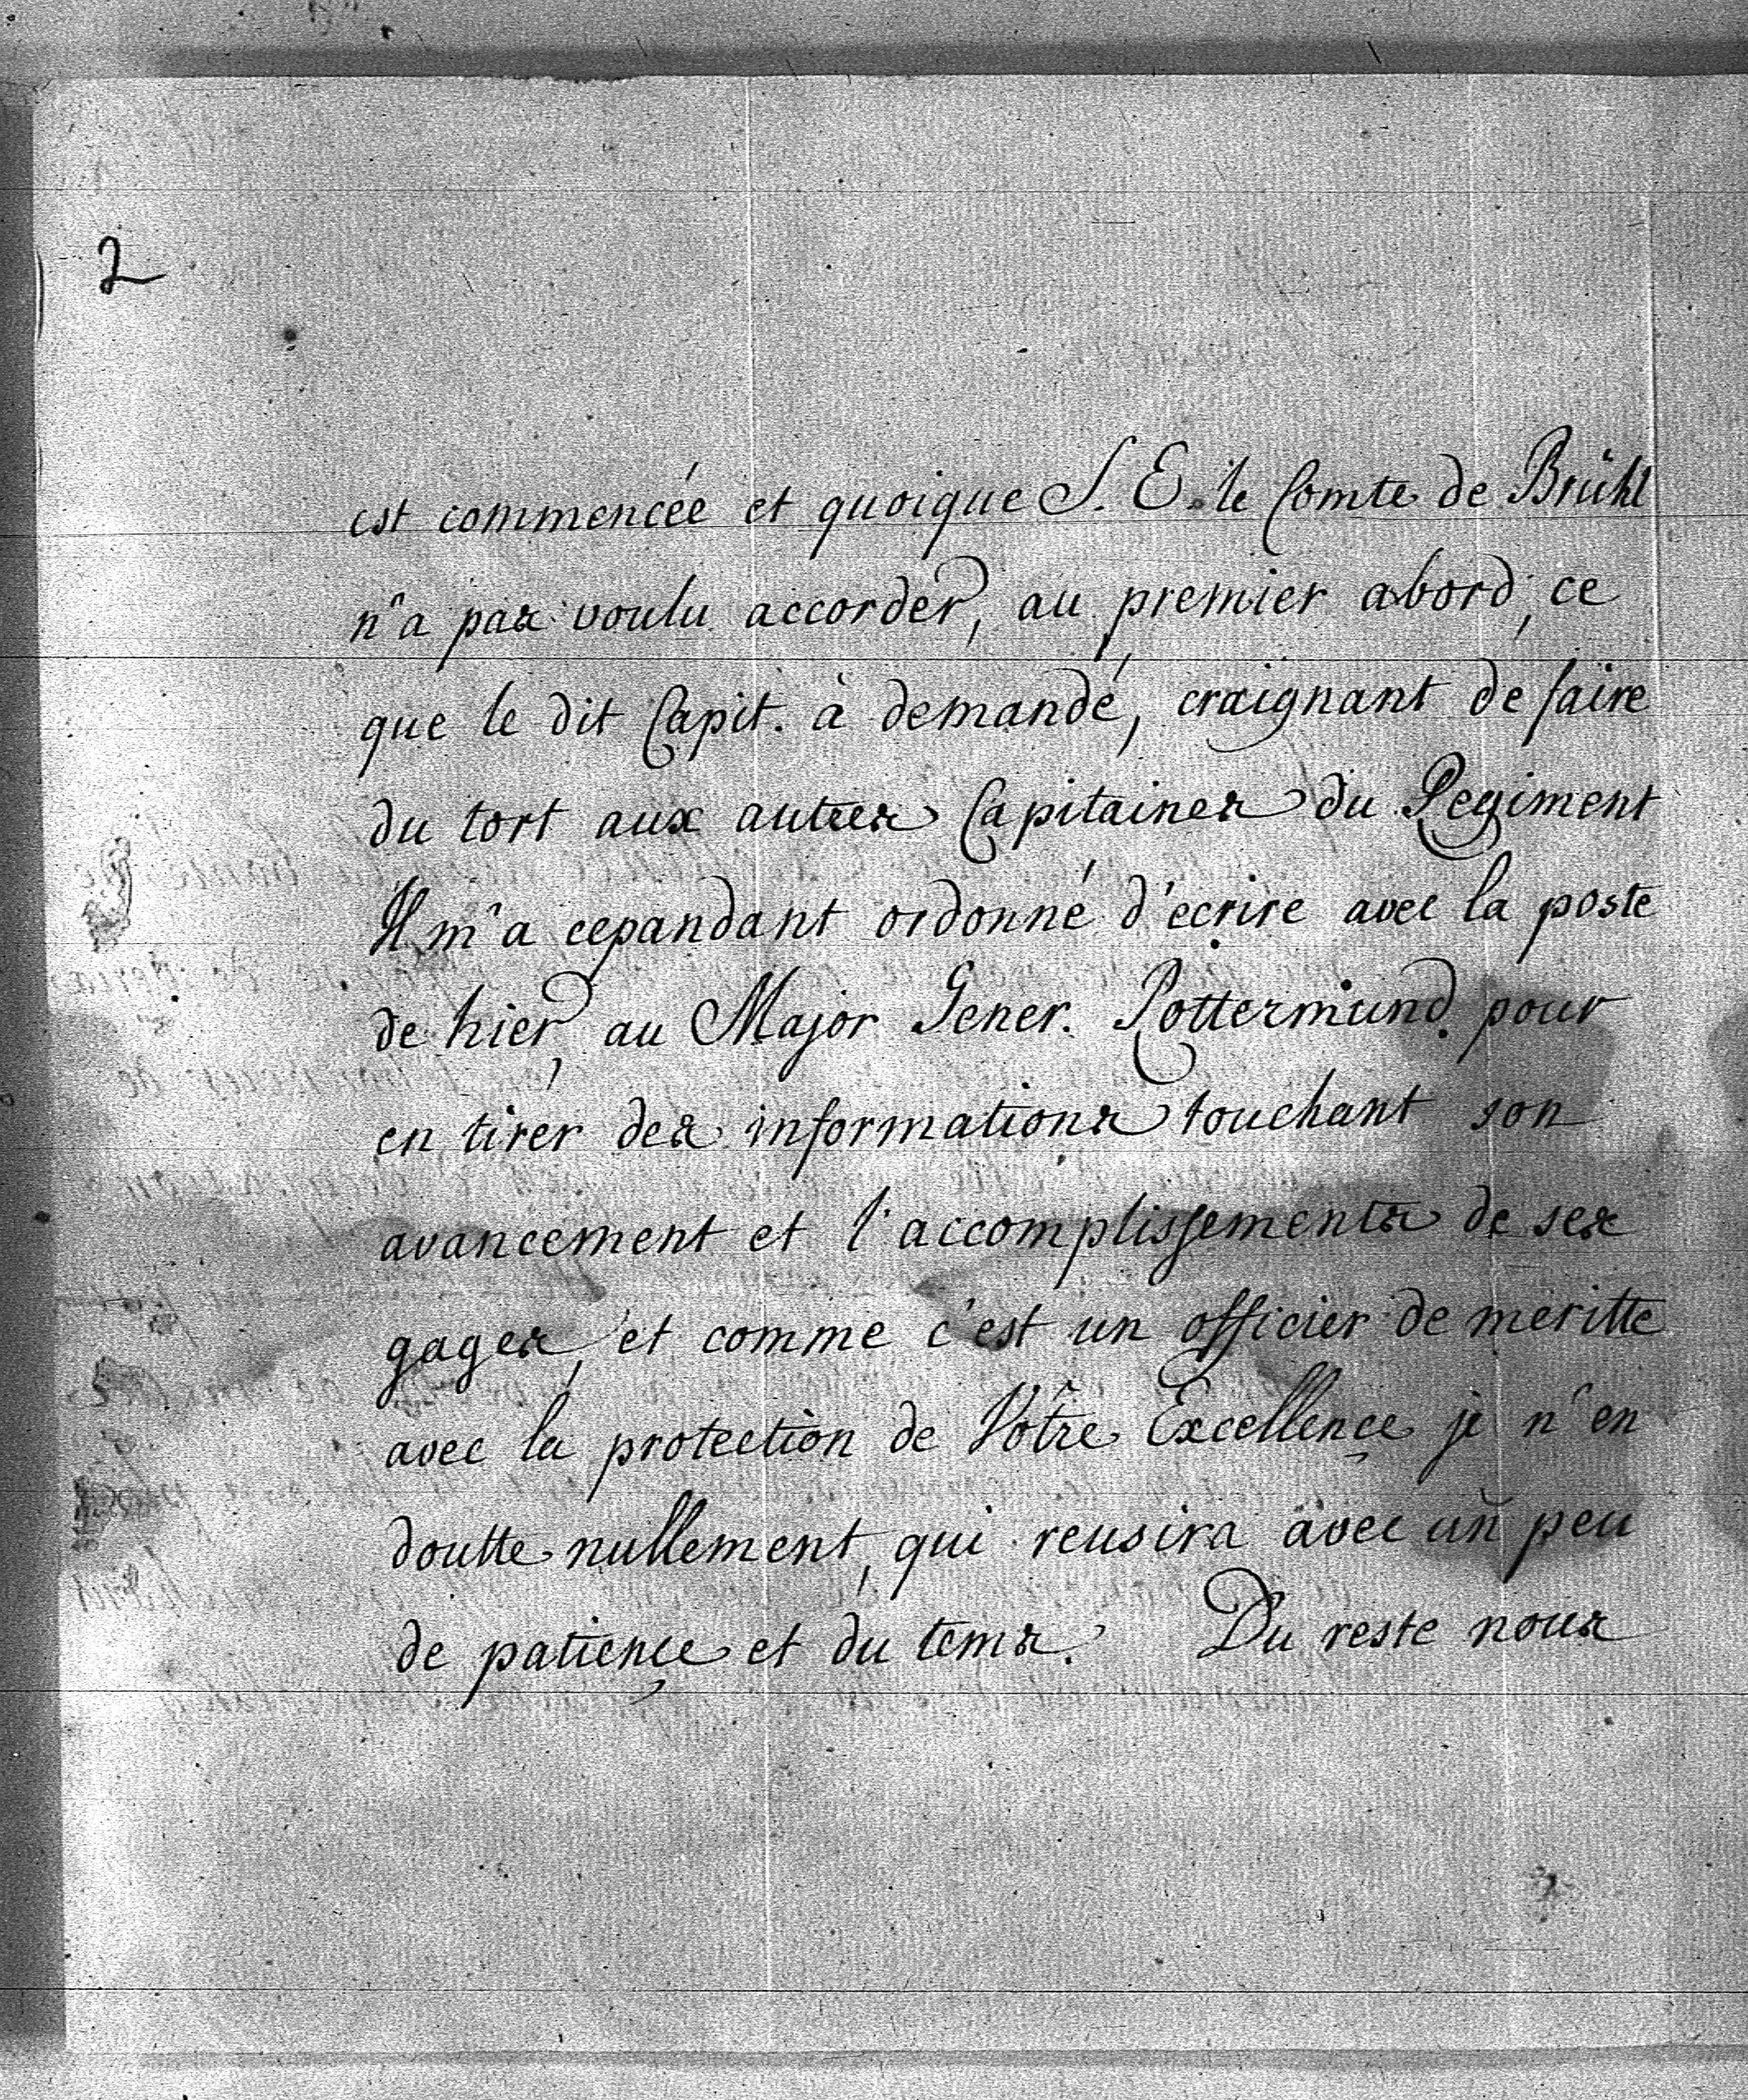 2
est commencée et quoique S. E. le Comte de Brühl
n'a pas voulu accorder, au premier abord, ce
que le dit Capit. à demandé, craignant de faire
du tort aux autres Capitaines du Regiment
Il m'a cepandant ordonné d'écrire avec la poste
de hier, au Major Gener. Rottermund pour
en tirer des informations touchant son
avancement et l'accomplissements de ses
gages, et comme c'est un officier de meritte
avec la protection de Vôtre Excellence je n'en
doutte nullement, qui reusira avec un peu
de patience et du tems. Du reste nous